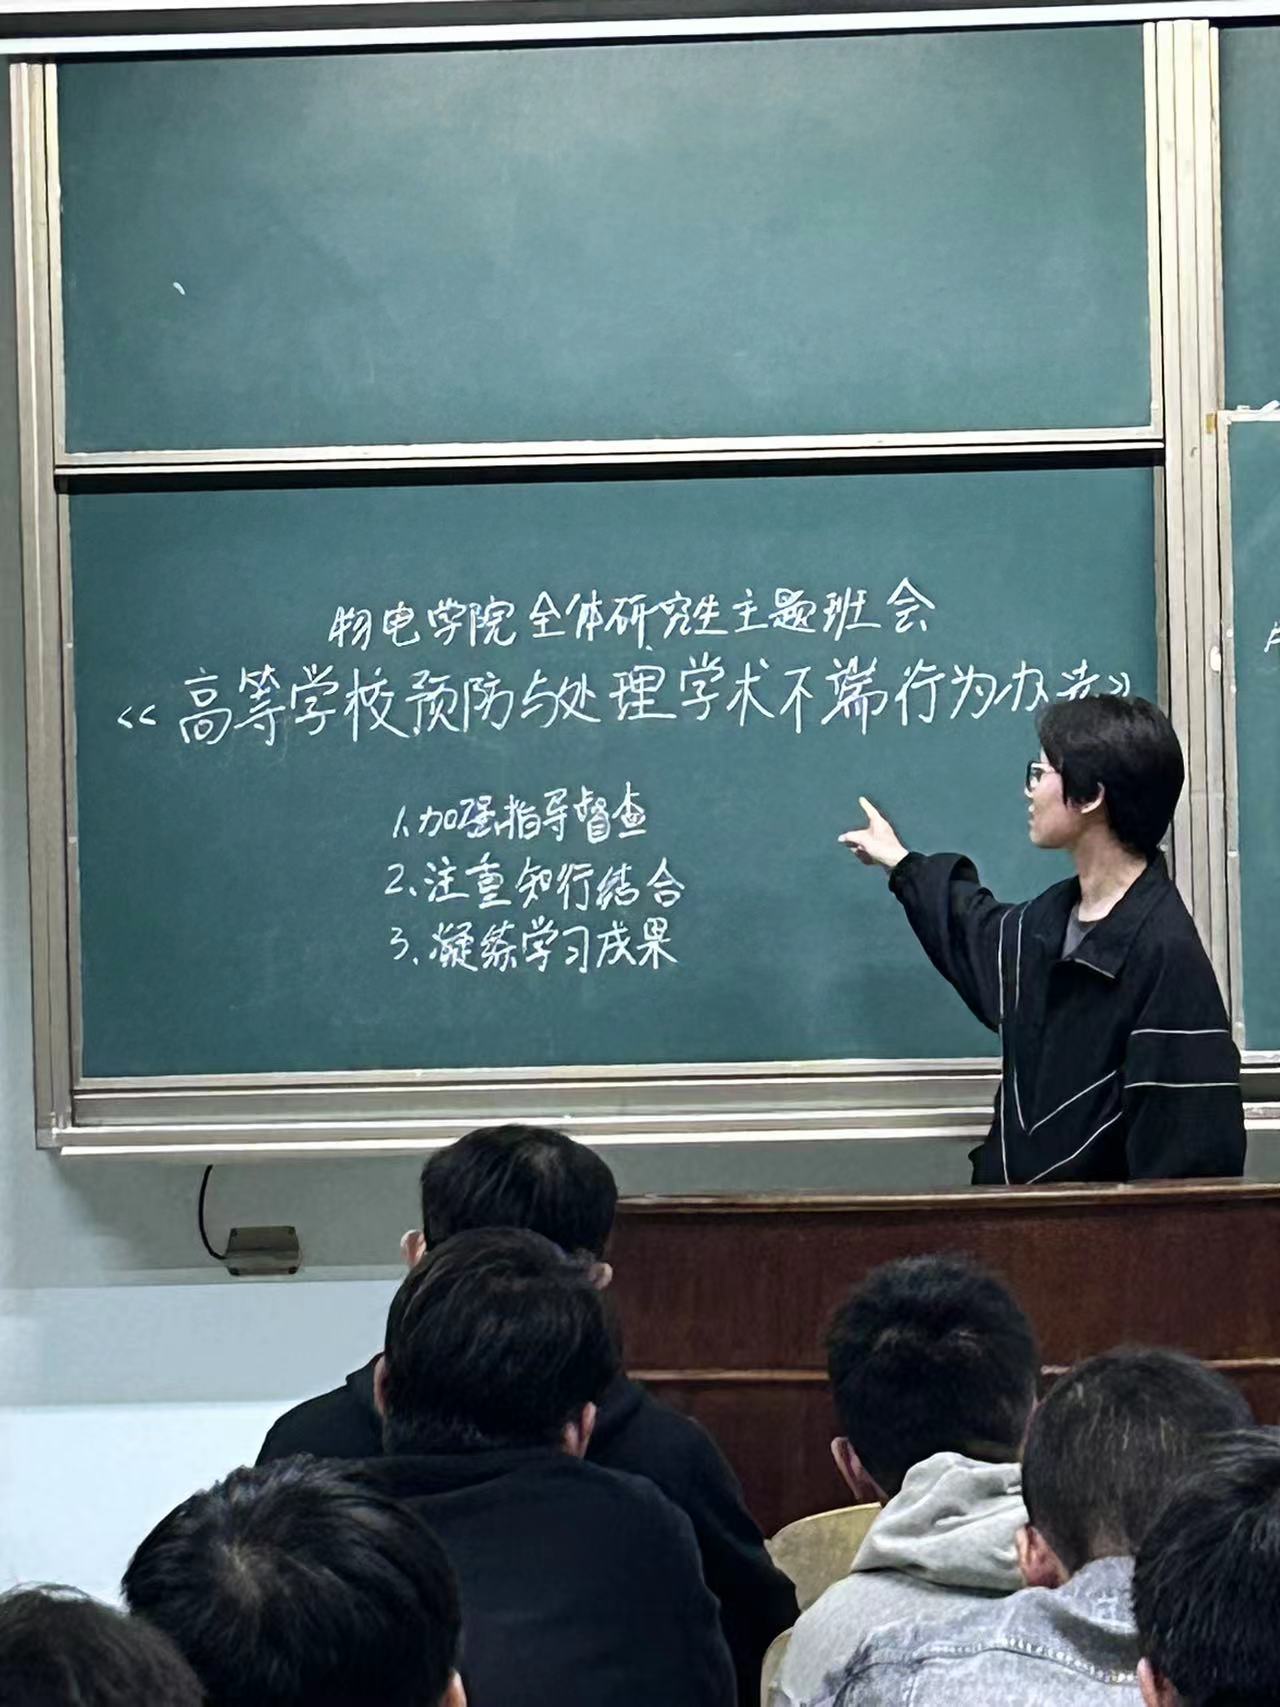 物电学院全体研究生主题班会
《高等学校预防与处理学术不端行为办法》
1.加强指导督查
2.注重知行结合
3.凝练学习成果